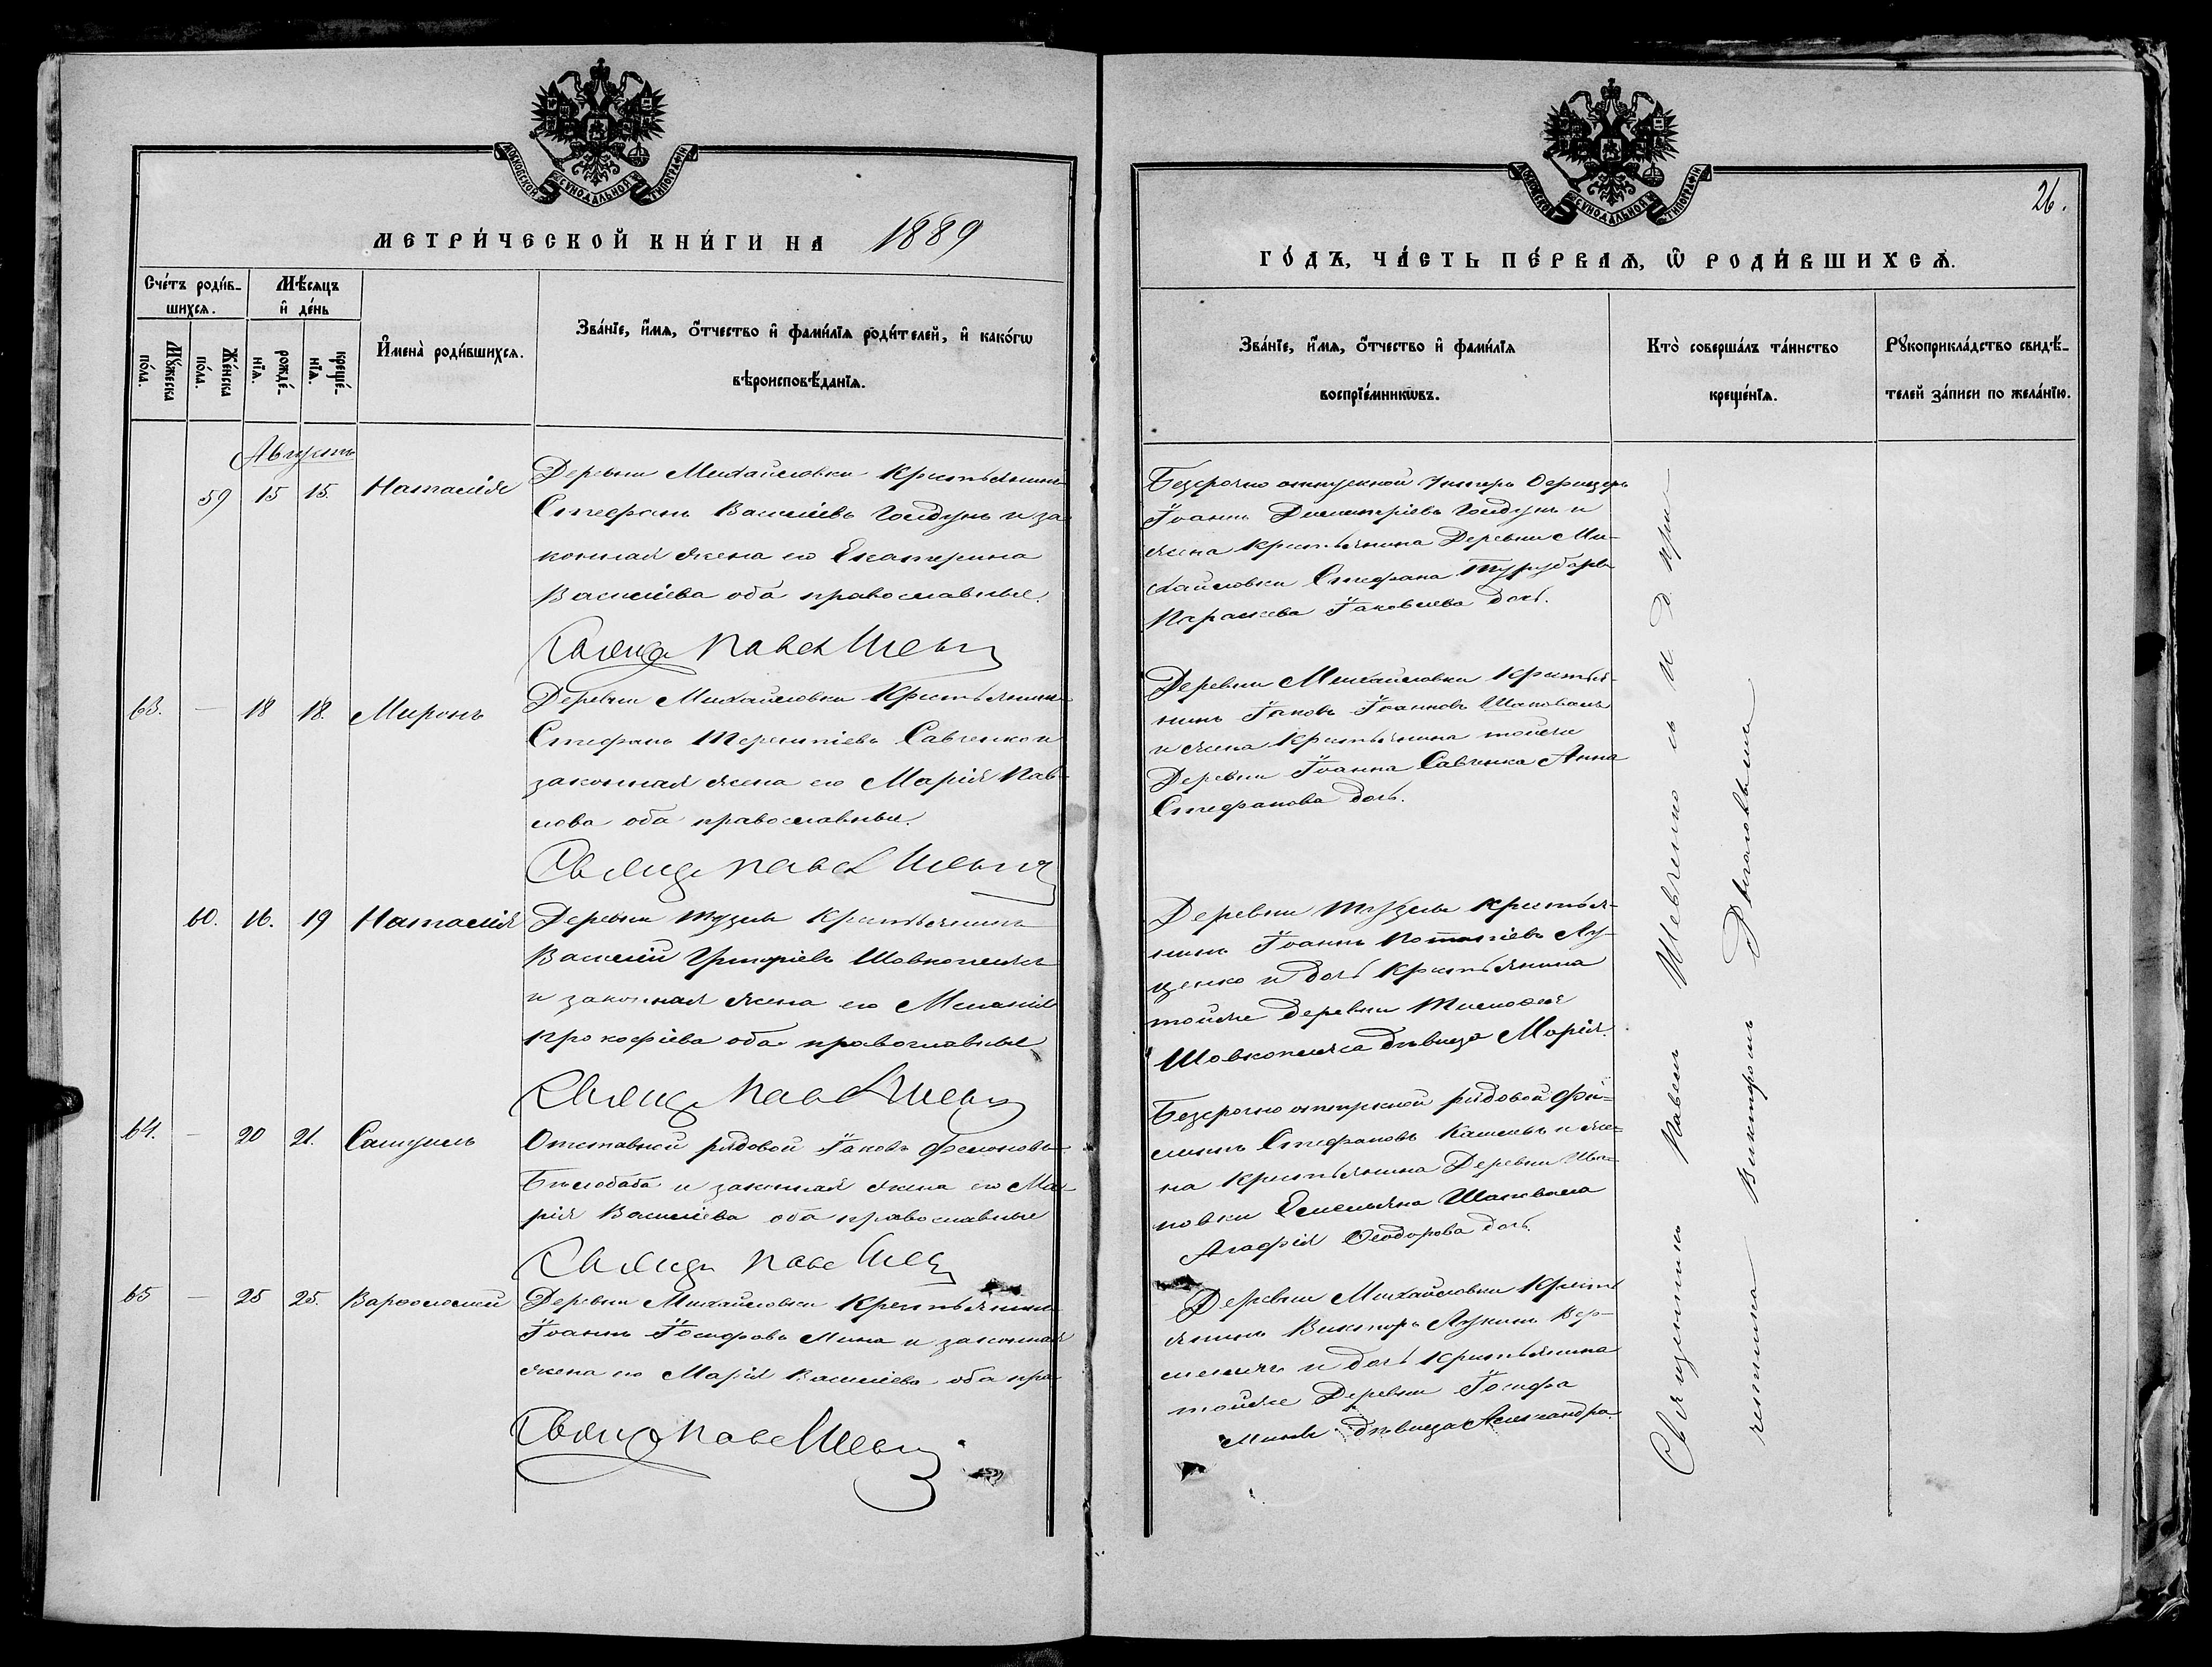 МОСКОВСКОЙ СѴНОДАЛЬНОЙ ТИПОГРАФІИ
МЕТРИ́ЧЕСКОЙ КНИ́ГИ НА 1889
Сче́тъ роди́в-
шихсѧ.
Мѣ́сѧцъ
и҆ де́нь
Мꙋ́жеска
по́ла.
Же́нска
по́ла.
рожде́-
нїѧ.
креще́-
нїѧ.
И҆мена̀ роди́вшихсѧ.
Зва́нїе, и҆́мѧ, ѻ҆́тчество и҆ фами́лїѧ роди́телей, и҆ како́гѡ
вѣроисповѣ́данїѧ.
Августъ
59 15 15. Наталія
Деревни Михайловки Крестьянинъ
Стефанъ Василіевъ Голдунъ и за
конная жена его Екатерина
Василіева оба православные.
Священ Павел Шевч
63. — 18 18. Миронъ
Деревни Михайловки Крестьянинъ
Стефанъ Терентіевъ Савченко и
законная жена его Марія Пав-
лова оба православные.
Священ Павел Шевч
60. 16. 19 Наталія
Деревни Тузлы Крестьянинъ
Василій Григоріевъ Шовкоплясъ
и законная жена его Меланія
Прокофіева оба православные
Священ Павел Шевч
64. — 20 21. Самуилъ
Отставной рядовой Іаковъ Филоновъ
Билобаба и законная жена его Ма-
рія Василіева оба православные
Священ Павел Шевч
65 — 25 25. Варѳоломей
Деревни Михайловки Крестьянинъ
Іоаннъ Іосифовъ Мина и законная
жена его Марія Василіева оба пра
Священ Павел Шевч
МОСКОВСКОЙ СѴНОДАЛЬНОЙ ТИПОГРАФІИ
26.
ГО́ДЪ, ЧА́СТЬ ПЕ́РВАѦ, Ѡ҆ РОДИ́ВШИХСѦ.
Зва́нїе, и҆́мѧ, ѻ҆́тчество и҆ фами́лїѧ
воспрїе́мникѡвъ.
Кто̀ соверша́лъ та́инство
креще́нїѧ.
Рꙋкоприкла́дство свидѣ́-
телей за́писи по жела́нїю.
Безсрочно отпускной Унтеръ Офицеръ
Іоаннъ Димитріевъ Голдунъ и
жена крестьянина Деревни Ми-
хайловки Стефана
Параскева Іаковлева дочь.
Деревни Михайловки Крестья-
нинъ Іаковъ Іоанновъ Шаповалъ
и жена Крестьянина тойже
Деревни Іоанна Савченка Анна
Стефанова дочь.
Деревни Тузлы Крестья-
нинъ Іоаннъ Лу-
ценко и дочь Крестьянина
тойже деревни Тимофея
Шовкопляса дѣвица Марія.
Безсрочно отпускной рядовой Фи-
липпъ Стефановъ и же-
на крестьянина Деревни Ива-
новки Емельяна Шаповала
Агафія Ѳеодорова дочь.
Деревни Михайловки Кресть
янинъ Викторъ Лукинъ
и дочь Крестьянина
тойже Деревни Іосифа
Мины дѣвица Александра.
Священникъ Павелъ Шевченко съ и. д. при-
четника Викторомъ